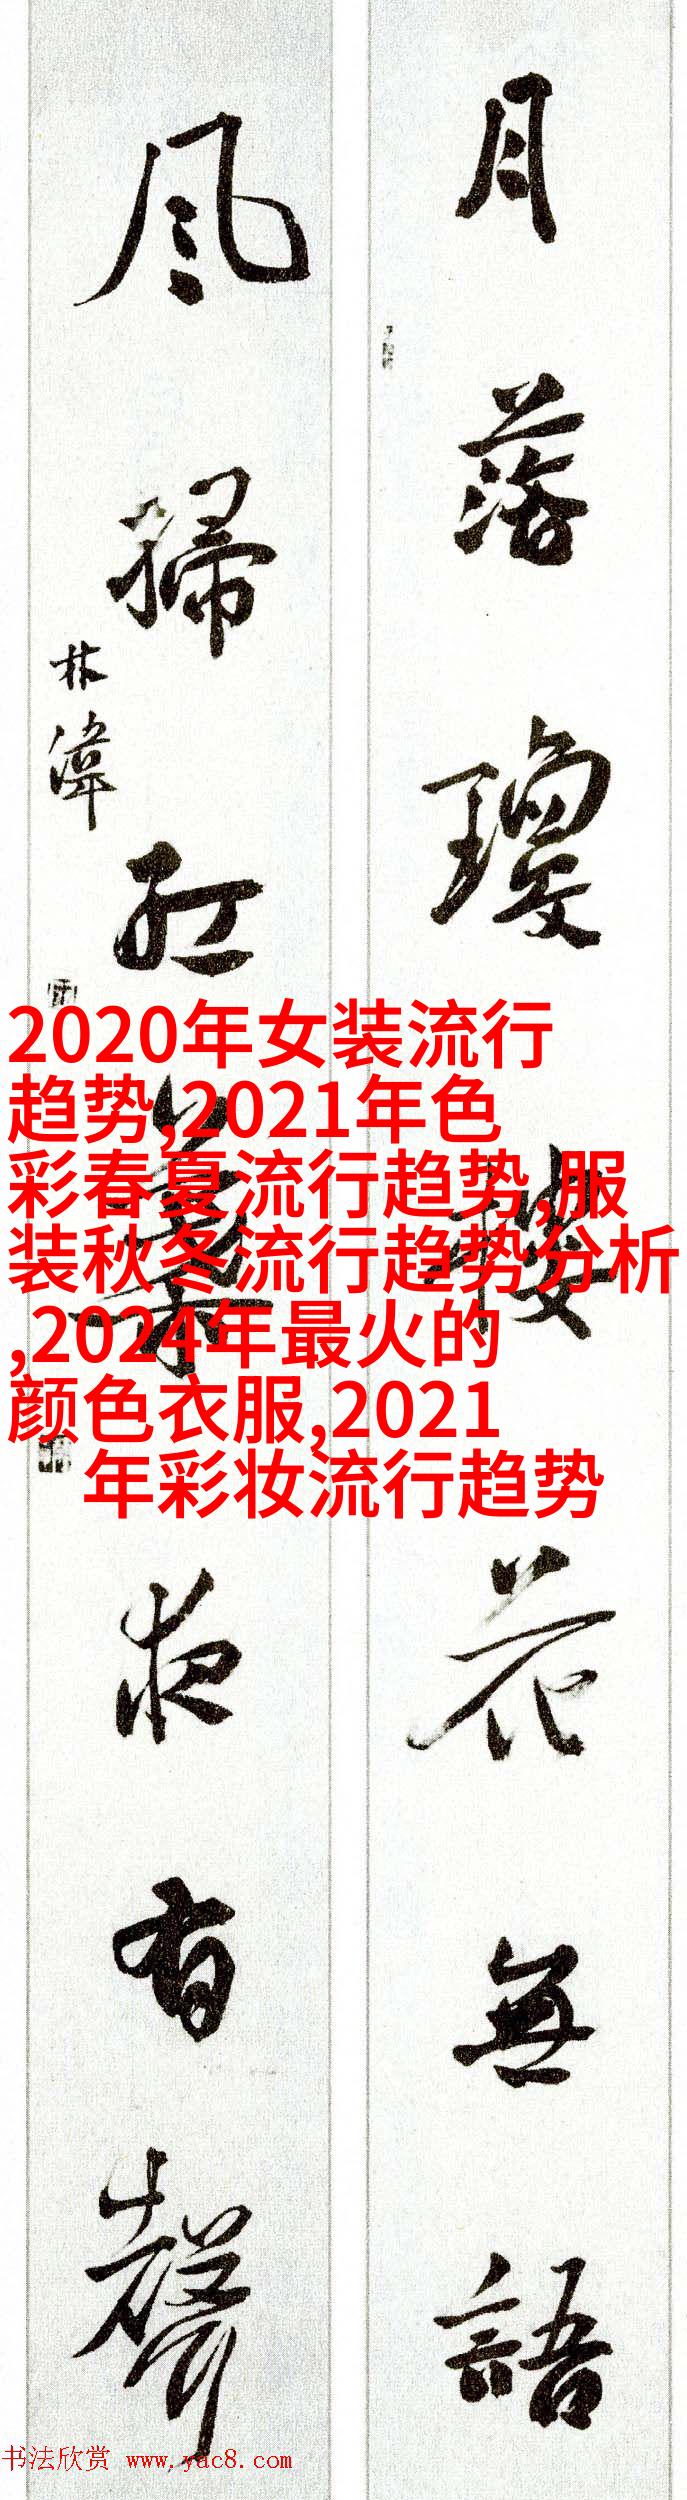 月落瓊樓花無語
風掃紅葉夜有聲
林
2020年女装流行
趋势,2021年色
彩春夏流行趋势,服
装秋冬流行趋势分析
,2024年最火的
颜色衣服,2021
年彩妆流行趋势
书法欣赏 www.yac8.com